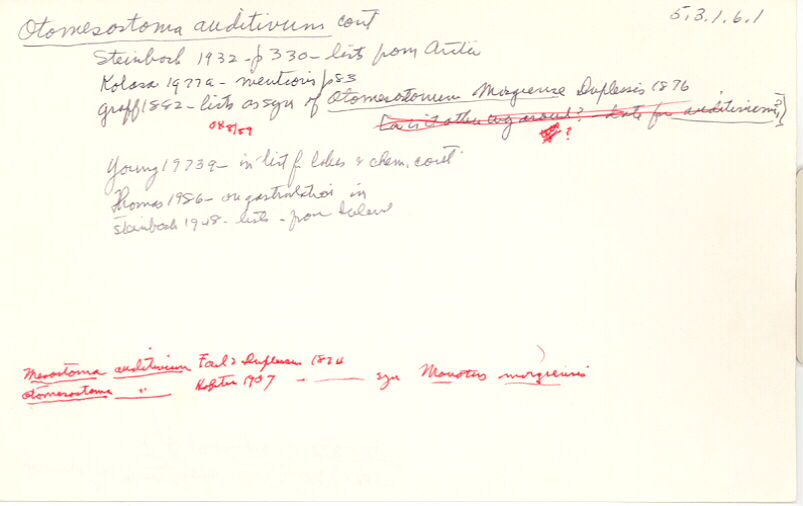 Otomesostoma auditivum cont 5.3.1.6.1
Steinbock 1932 - p 330 - lists from Arctic
Kolasa 1977a - mentions p83
Graff 1882 - lists as syn of Otomesostomum Morgiense Duplessis 1876
OK 8/89
(or is it other way around? - date for auditivum?)
?
Young 1973a - in list f. lakes & chem. cont
Thomas 1986 - on gastrulation in
Steinbock 1948 - lists - from Iceland
Mesostoma auditivum Forel & Duplessis 1874
Otomesostoma " Hofsten 1907 - syn Monotus morgiensis